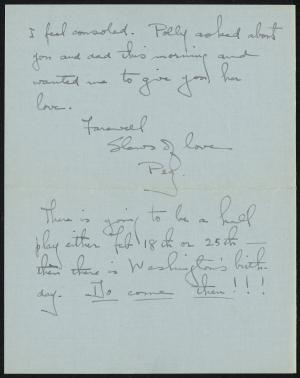 I feel consoled. Polly asked about
you and dad this morning and
wanted me to give you her
love.
Farewell
Slews of love
Peg.
There is going to be a hull
play either Feb 18th or 25th —
then there is Washington's birth-
day. Do come then!!!